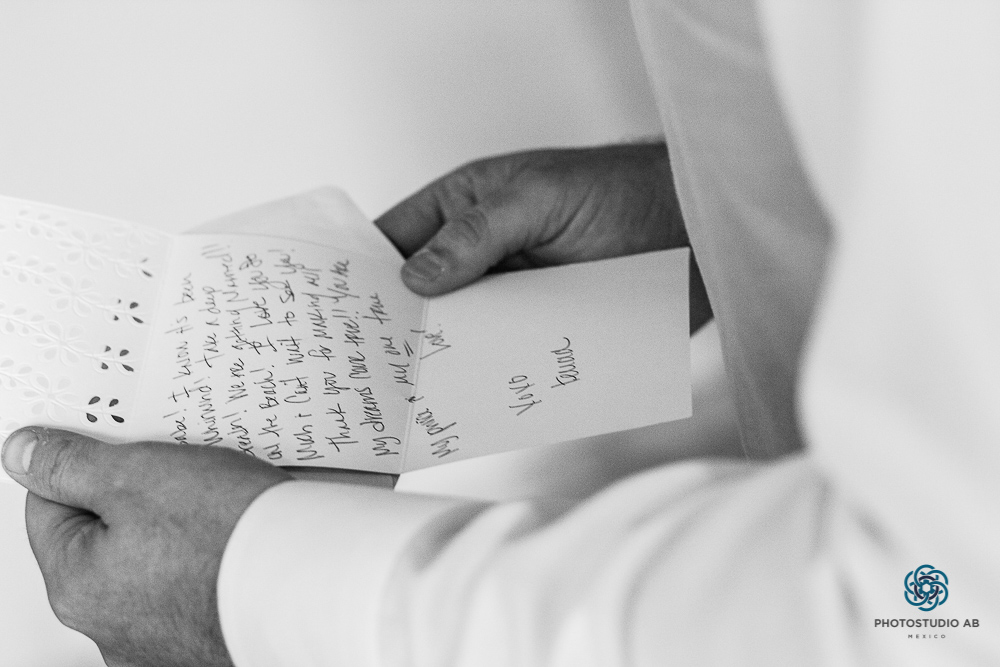 I know it's been
Whirlwind! Take a deep
breath! We are getting Married!!
on the Beach! I love you so
Much & Can't wait to see ya!
Thank you for making all
My dreams come true!! You're the
My prince
all one
true
xoxo
PHOTOSTUDIO AB
MEXICO